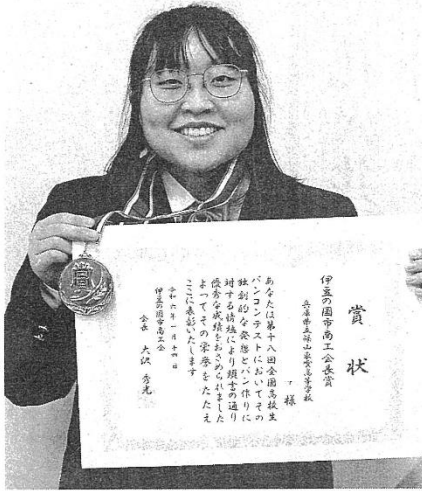 賞状
伊豆の国市商工会長賞
兵庫県立篠山東雲高等学校
様
あなたは第十八回全国高校生
パンコンテストにおいてその
独創的な発想とパン作りに
対する情熱により頭書の通り
優秀な成績をおさめられました
よってその栄誉をたたえ
ここに表彰いたします
令和六年一月十四日
伊豆の国市商工会
会長 大沢秀光